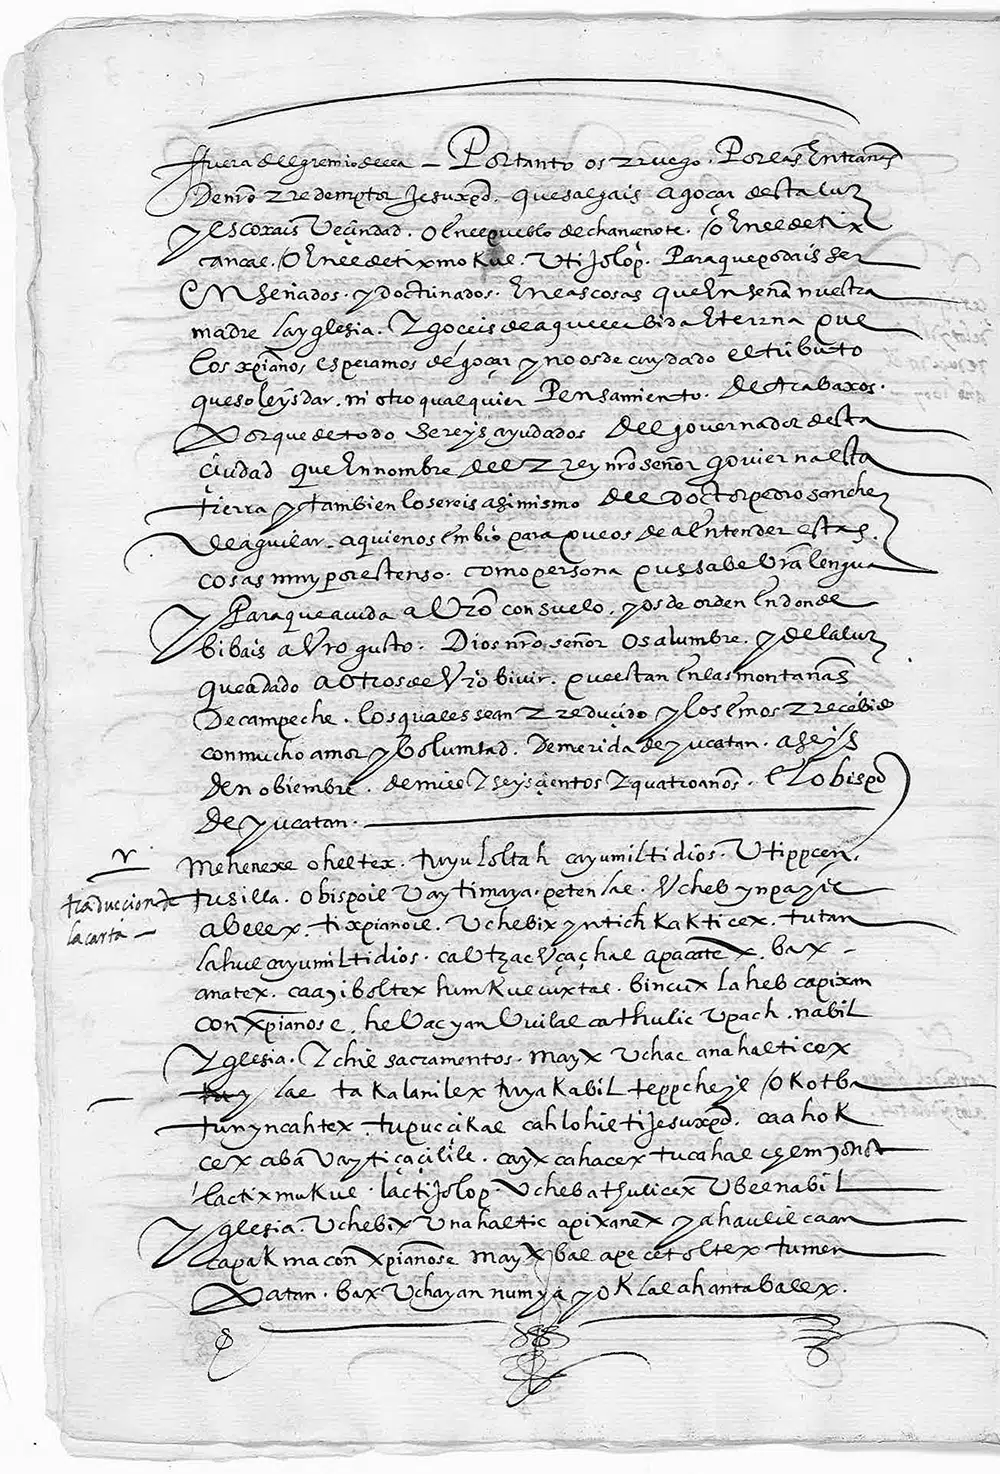 ffuera del gremio della – Portanto os rruego. Por las Entrañas
De nrō rredemptor Jesuxpō. que salgais a goçar desta luz
y escoxais Veçindad. o En el pueblo de chancenote. o En el de tix
cancal. o En el de tixmokul. V ti Jolop. Para que podais ser
Enseñados. y doctrinados. En las cosas que Enseña nuestra
madre la yglesia. Y goçeis de aquella bida Eterna que
los xpianos esperamos de goçar y no os de cuydado el tributo
que soleys dar. ni otro qualquier Pensamiento. De trabaxos.
Porque de todo sereys ayudados Del governador desta
çiudad que En nombre del rrey nrō señor govierna esta
tierra y tambien lo sereis asimismo del Doctor pedro sanchez
de aguilar. a quien os Embio para que os de a Entender estas
cosas muy por estenso. como persona que sabe Vrā lengua
y Para que acuda a Vrō consuelo. y os de orden En donde
bibais a Vro gusto. Dios nrō señor os alumbre. y de la luz
que a dado a otros de Vrō bivir. que estan En las montañas
De campeche. los quales se an rreduçido y los Emos rrecebido
con mucho amor y Voluntad. De merida de yucatan. a seys
de nobiembre. de mill Y seysçientos Y quatro años. El obispō
de yucatan.
traduccion de
la carta –
Mehenexe oheltex. tuyu loltah cayumilti dios. V tippcen
tusilla. obispoil Vay ti maya. peten lae. Vcheb ynpayic
abelex. ti xpianoil. Vchebix yntich kakticex. tutan
lahul cayumilti dios. ca Vtzac Vcachac apacatex. bax
anatex. caayiboltex hunkul cuxtal. bincux laheb capixan
con xpianose. he Vac yan Vuilal cathulic Vpach. nabil
Yglesia. Ychil sacramentos. mayx Vchac anahalticex
lae takalanilex tuyakabil teppcheje okotba
tunyncahtex. tupuccikal cahlohil ti Jesuxpō. caahok
cex aba Vay ti çaçilile. cayx cahacex tucahal
lactixmukul. lacti Jolop. Vcheb athulicex Vbelnabil
Yglesia. Vchebix Vnahaltic apixanex yahaulil caan
capakma con xpianose mayx bal apecetoltex tumen
Patan. bax Vchayan numya yoklal ahantabalex.